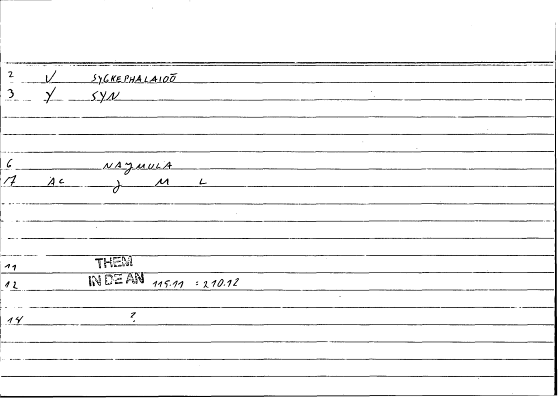 2 V SYGKEPHALAIOŌ
3 Y SYN
6 NAJMULA
17 AC J M L
11 THEM
12 IN DE AN 115.11 : 210.12
14 ?